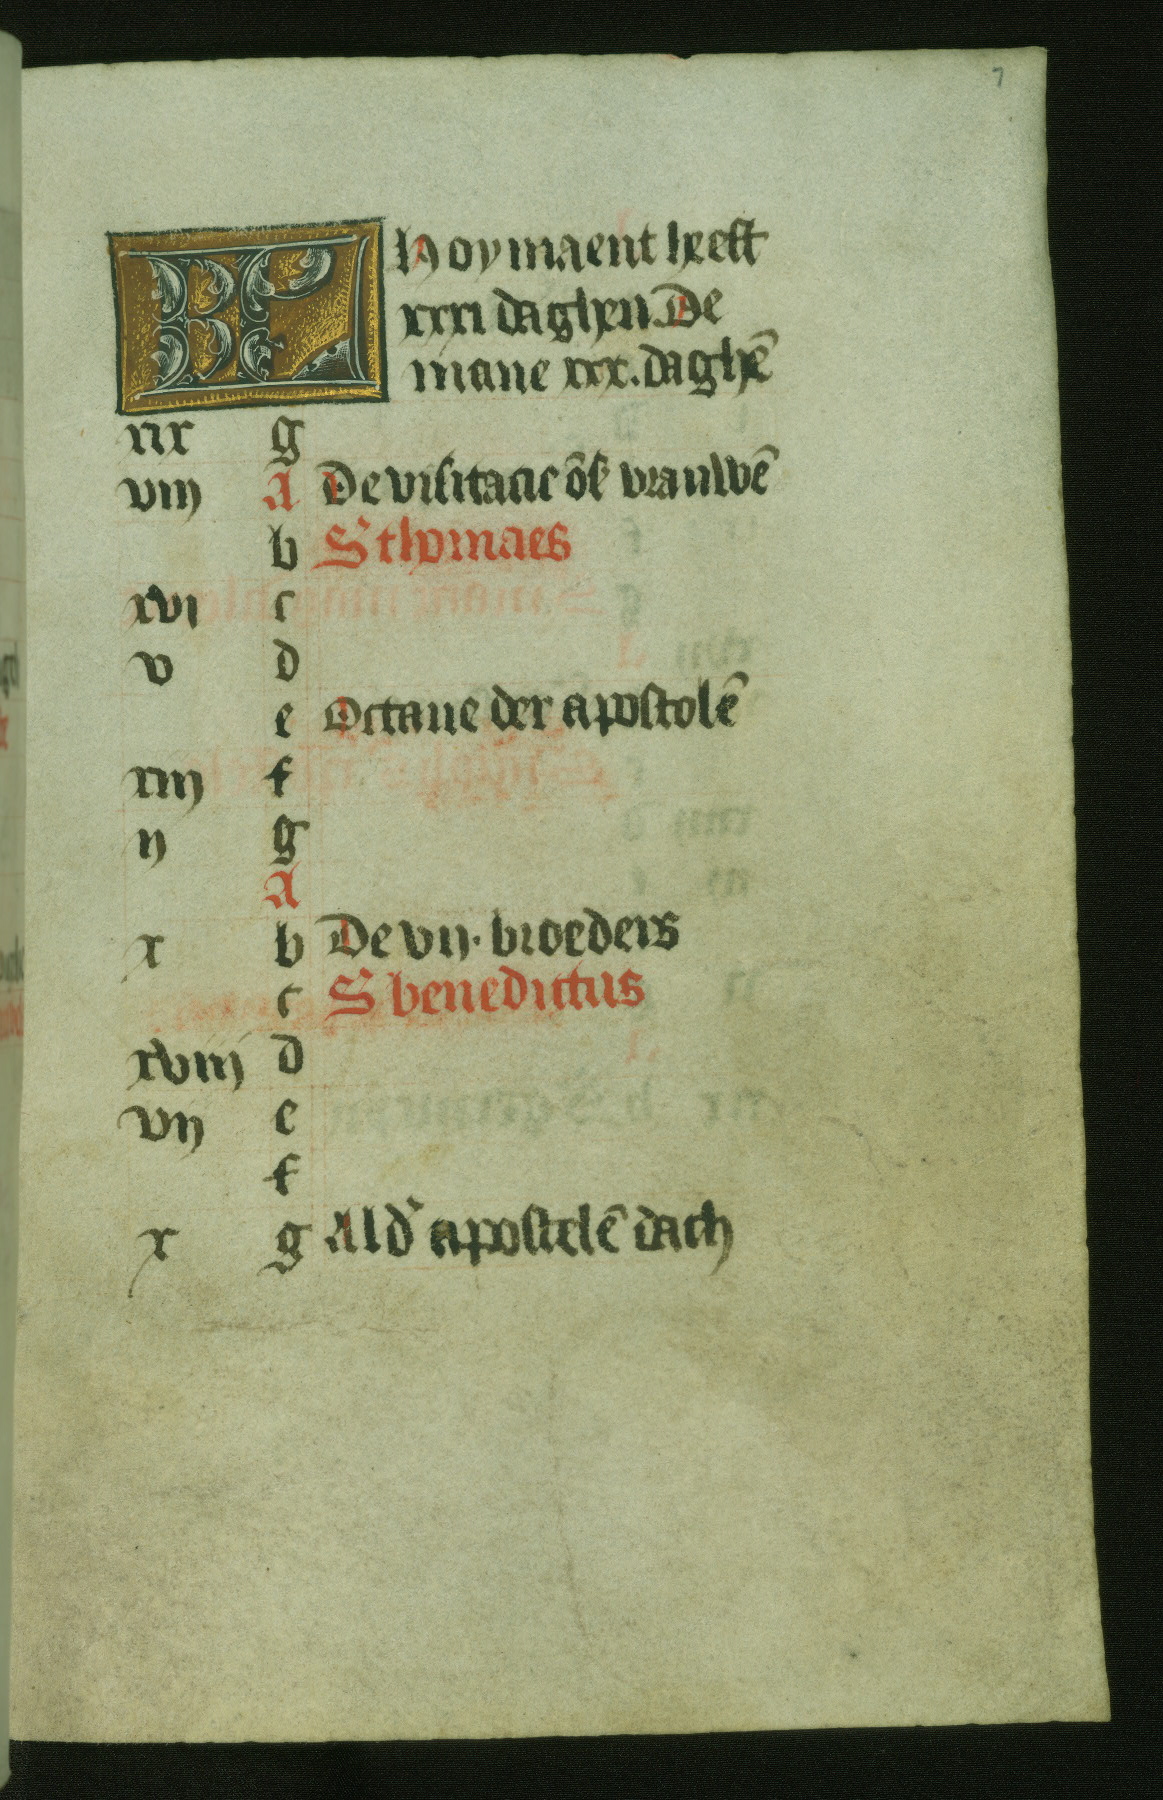 7
KL Hoymaent heeft
xxxi daghen De
mane xxx. daghē
xix g
viij A De visitacic ōſ vrauwē
b S thomaes
xvi c
v d
e Octaue der apostolē
xiij f
ij g
A
x b De vij. broeders
c S benedictus
xviij d
vij e
f
x g Ald' apostelē dach